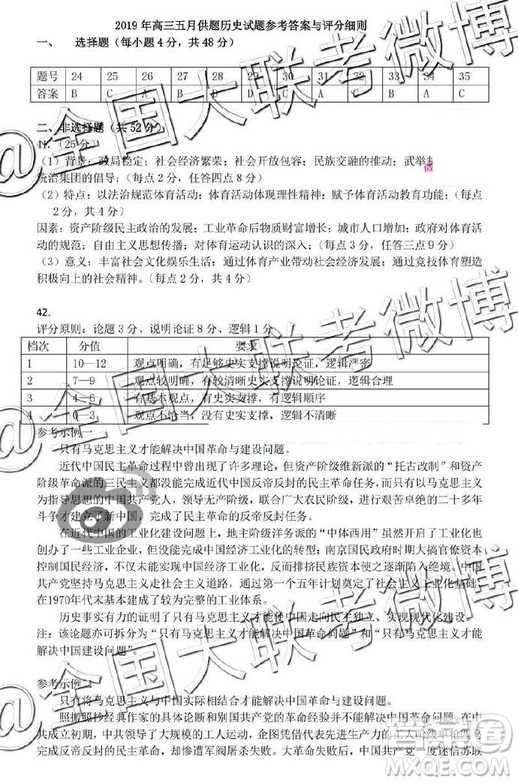 2019 年高三五月供题历史试题参考答案与评分细则
一、 选择题（每小题 4 分，共 48 分）
题号 24 25 26 27 28 29 30 31 32 33 34 35
答案 B C A B D A C
二、非选择题（共 52 分）
41.（25 分）
（1）背景：政局稳定；社会经济繁荣；社会开放包容；民族交融的推动；武举
统治集团的倡导；（每点 2 分，任答四点 8 分）
（2）特点：以法治规范体育活动；体育活动体现理性精神；赋予体育活动教育功能；（每点
2 分，共 4 分）
因素：资产阶级民主政治的发展；工业革命后物质财富增长；城市人口增加；政府对体育活
动的规范；自由主义思想传播；对体育运动认识的深入。（每点 3 分，任答三点 9 分）
（3）意义：丰富社会文化娱乐生活；通过体育产业带动社会经济发展；通过竞技体育塑造
积极向上的社会精神。（每点 2 分，共 4 分）
42.
评分原则：论题 3 分、说明论证 8 分、逻辑 1 分
档次 分值 要求
1 10—12 观点明确，有足够史实支撑说明论证，逻辑严密
2 7—9 观点较明确，有较清晰史实支撑说明论证，逻辑合理
3 4—6 有基本观点，有史实支撑，有逻辑顺序
4 0—3 观点不恰当，没有史实支撑，逻辑不清晰
参考示例一
只有马克思主义才能解决中国革命与建设问题。
近代中国民主革命过程中曾出现过许多理论，但资产阶级维新派的“托古改制”和资产
阶级革命派的三民主义都没能完成近代中国反帝反封的民主革命任务。以马克思主义
为指导思想的中国共产党人，领导无产阶级，联合广大农民阶级，经过艰苦卓绝的二十多年
斗争建立了新中国，完成了民主革命的反帝反封任务。
在近代中国的工业化建设问题上，地主阶级洋务派的“中体西用”虽然开启了工业化并
创办了一些工业企业，但无法完成中国经济工业化的转型；南京国民政府时期大搞官僚资本
控制国民经济，无法实现中国的工业化，反而使民族资本主义经济不断萎缩。新中国时期，中国
共产党坚持马克思主义走社会主义道路，通过第一个五年计划奠定了社会主义工业化基础，
在1970年代末基本建成了较为完整的工业体系。
历史事实有力的证明了只有马克思主义才能使中国走向民主独立、实现工业化建设。
注：该论题亦可拆分为“只有马克思主义才能解决中国革命问题”和“只有马克思主义才能解
决中国建设问题”。
参考示例二
只有将马克思主义与中国实际相结合才能解决中国革命与建设问题。
照搬照抄经典作家的具体论断和别国共产党的革命经验并不能解决中国革命问题。大革
命失败后，中共领导了大规模的工人运动，企图凭借代表先进生产力的工人阶级单独完成
反帝反封的民主革命任务，但都遭受军阀屠杀失败。大革命失败后，中国共产党一度迷信苏联
@全国大联考微博
@全国大联考微博
@全国大联考微博